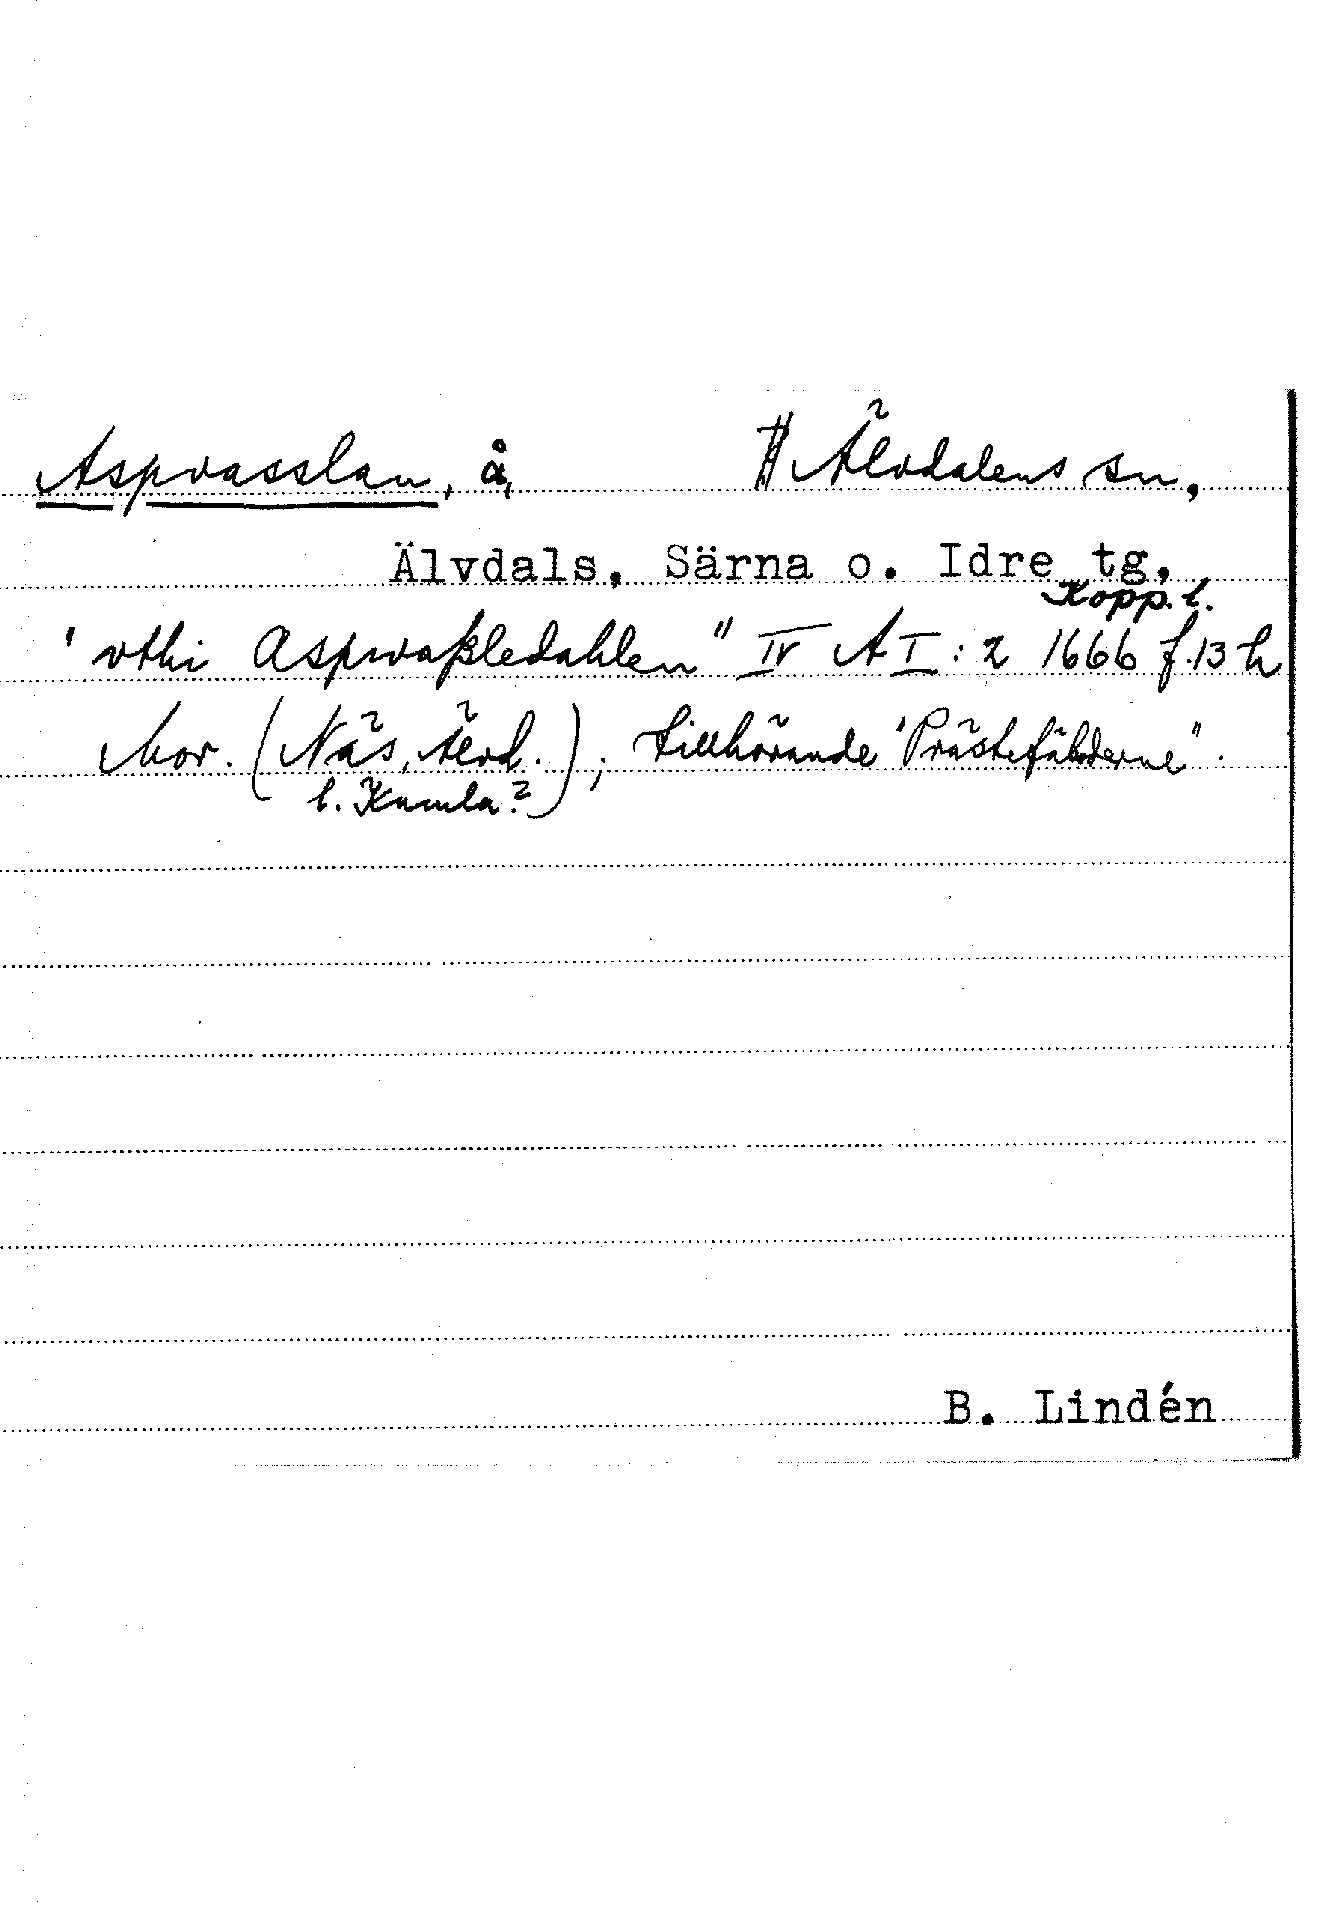 Aspvasslan, å, Älvdalens sn,
Älvdals, Särna o. Idre tg,
Kopp. l.
"vthi Aspwaßledahlen" IV A I : 2 1666 f.13 h
Mor. (Näs, Älvd.); tillhörande "Prästefäbderne".
l. Kumla?
B. Lindén